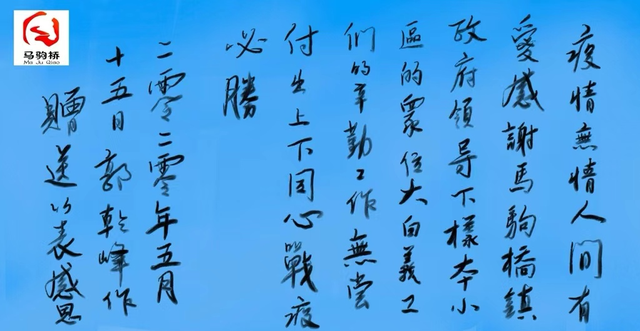 疫情無情人間有
愛感謝馬駒橋鎮
政府領导下樣本小
區的眾位大白義工
们的辛勤工作無尝
付出上下同心戰疫
必勝
二零二零年五月
十五日郭乾峰作
贈送以表感恩
马驹桥
Ma Ju Qiao